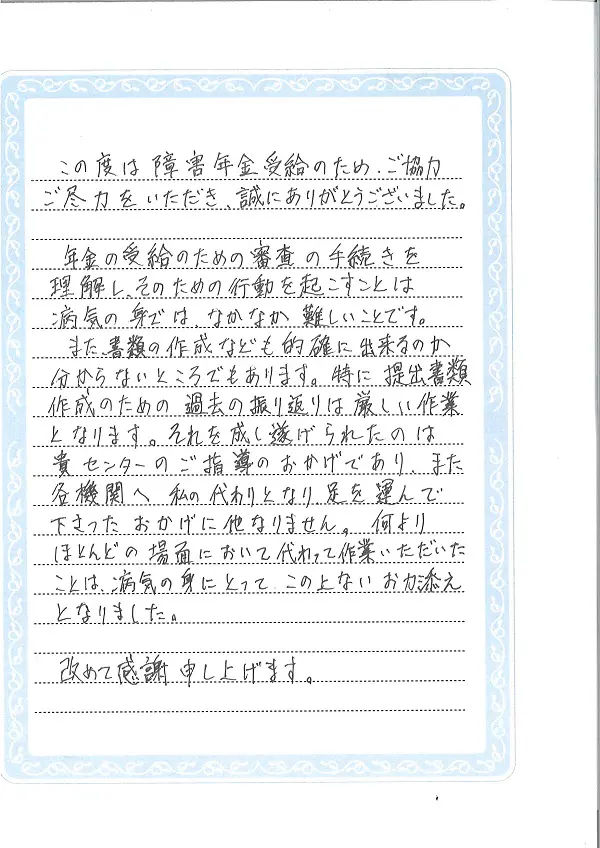 この度は障害年金受給のため、ご協力
ご尽力をいただき、誠にありがとうございました。
年金の受給のための審査の手続きを
理解し、そのための行動を起こすことは
病気の身では、なかなか難しいことです。
また、書類の作成なども的確に出来るのか
分からないところでもあります。特に提出書類
作成のための過去の振り返りは厳しい作業
となります。それを成し遂げられたのは
貴センターのご指導のおかげであり、また
各機関へ私の代わりとなり足を運んで
下さったおかげに他なりません。何より
ほとんどの場面において代わって作業いただいた
ことは、病気の身にとって、この上ないお力添え
となりました。
改めて感謝申し上げます。